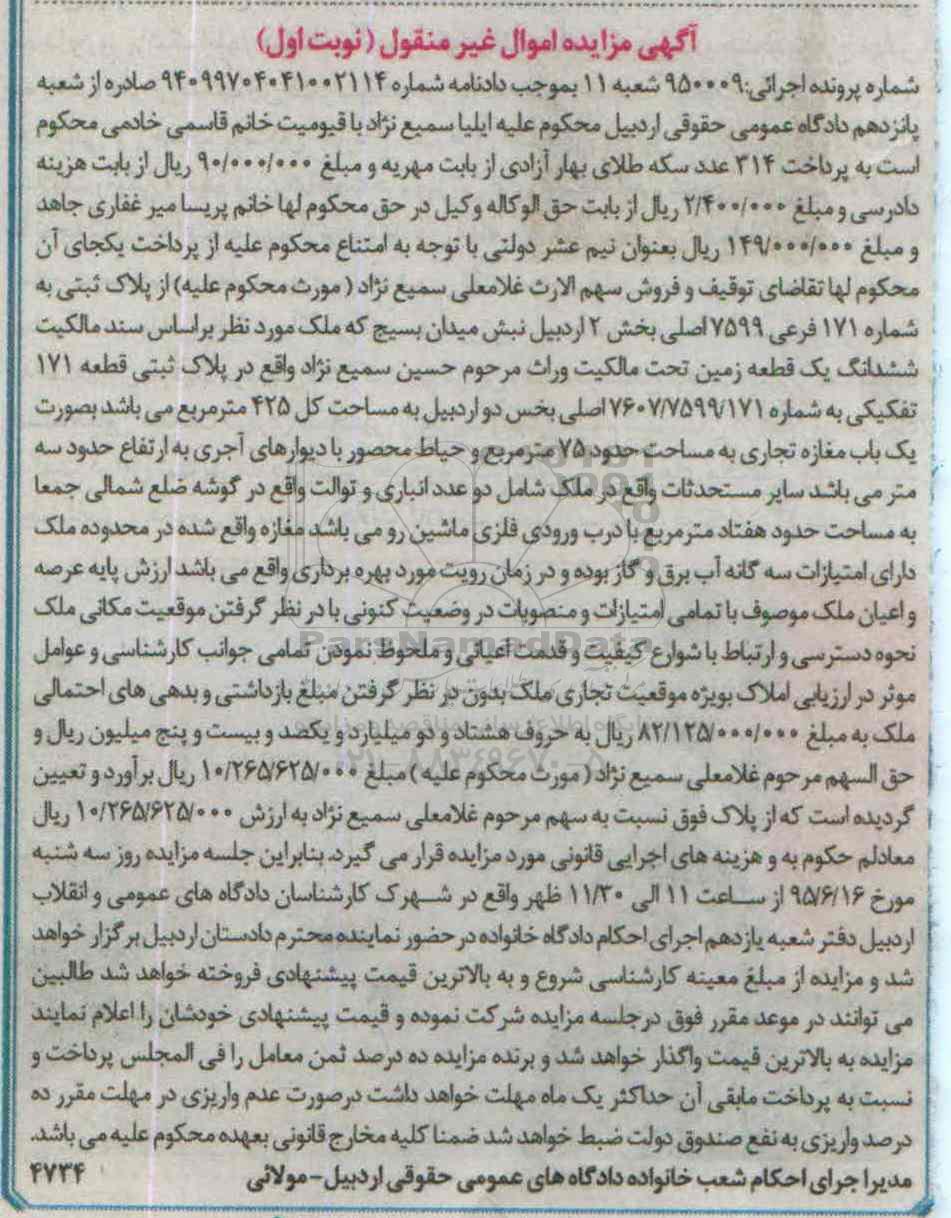 آگهی مزایده اموال غیر منقول (نوبت اول)
شماره پرونده اجرائی:۹۵۰۰۰۹ شعبه ۱۱ بموجب دادنامه شماره ۹۴۰۹۹۷۰۴۰۴۱۰۰۲۱۱۴ صادره از شعبه
پانزدهم دادگاه عمومی حقوقی اردبیل محکوم علیه ایلیا سمیع نژاد با قیومیت خانم قاسمی خادمی محکوم
است به پرداخت ۳۱۴ عدد سکه طلای بهار آزادی از بابت مهریه و مبلغ ۹۰/۰۰۰/۰۰۰ ریال از بابت هزینه
دادرسی و مبلغ ۲/۴۰۰/۰۰۰ ریال از بابت حق الوکاله وکیل در حق محکوم لها خانم پریسا میر غفاری جاهد
و مبلغ ۱۴۹/۰۰۰/۰۰۰ ریال بعنوان نیم عشر دولتی با توجه به امتناع محکوم علیه از پرداخت یکجای آن
محکوم لها تقاضای توقیف و فروش سهم الارث غلامعلی سمیع نژاد ( مورث محکوم علیه) از پلاک ثبتی به
شماره ۱۷۱ فرعی ۷۵۹۹ اصلی بخش ۲ اردبیل نبش میدان بسیج که ملک مورد نظر براساس سند مالکیت
ششدانگ یک قطعه زمین تحت مالکیت وراث مرحوم حسین سمیع نژاد واقع در پلاک ثبتی قطعه ۱۷۱
تفکیکی به شماره ۷۶۰۷/۷۵۹۹/۱۷۱ اصلی بخس دو اردبیل به مساحت کل ۴۲۵ مترمربع می باشد بصورت
یک باب مغازه تجاری به مساحت حدود ۷۵ مترمربع و حیاط محصور با دیوارهای آجری به ارتفاع حدود سه
متر می باشد سایر مستحدثات واقع در ملک شامل دو عدد انباری و توالت واقع در گوشه ضلع شمالی جمعا
به مساحت حدود هفتاد مترمربع با درب ورودی فلزی ماشین رو می باشد مغازه واقع شده در محدوده ملک
دارای امتیازات سه گانه آب برق و گاز بوده و در زمان رویت مورد بهره برداری واقع می باشد ارزش پایه عرصه
و اعیان ملک موصوف با تمامی امتیازات و منصوبات در وضعیت کنونی با در نظر گرفتن موقعیت مکانی ملک
نحوه دسترسی و ارتباط با شوارع کیفیت و قدمت اعیانی و ملحوظ نمودن تمامی جوانب کارشناسی و عوامل
ParsNamadData
موثر در ارزیابی املاک بویژه موقعیت تجاری ملک بدون در نظر گرفتن مبلغ بازداشتی و بدهی های احتمالی
ملک به مبلغ ۸۲/۱۲۵/۰۰۰/۰۰۰ ریال به حروف هشتاد و دو میلیارد و یکصد و بیست و پنج میلیون ریال و
حق السهم مرحوم غلامعلی سمیع نژاد ( مورث محکوم علیه ) مبلغ ۱۰/۲۶۵/۶۲۵/۰۰۰ ریال برآورد و تعیین
گردیده است که از پلاک فوق نسبت به سهم مرحوم غلامعلی سمیع نژاد به ارزش ۱۰/۲۶۵/۶۲۵/۰۰۰ ریال
معادلم حکوم به و هزینه های اجرایی قانونی مورد مزایده قرار می گیرد. بنابراین جلسه مزایده روز سه شنبه
مورخ ۹۵/۶/۱۶ از ساعت ۱۱ الی ۱۱/۳۰ ظهر واقع در شهرک کارشناسان دادگاه های عمومی و انقلاب
اردبیل دفتر شعبه یازدهم اجرای احکام دادگاه خانواده در حضور نماینده محترم دادستان اردبیل برگزار خواهد
شد و مزایده از مبلغ معینه کارشناسی شروع و به بالاترین قیمت پیشنهادی فروخته خواهد شد طالبین
می توانند در موعد مقرر فوق درجلسه مزایده شرکت نموده و قیمت پیشنهادی خودشان را اعلام نمایند
مزایده به بالاترین قیمت واگذار خواهد شد و برنده مزایده ده درصد ثمن معامل را فی المجلس پرداخت و
نسبت به پرداخت مابقی آن حداکثر یک ماه مهلت خواهد داشت درصورت عدم واریزی در مهلت مقرر ده
درصد واریزی به نفع صندوق دولت ضبط خواهد شد ضمنا کلیه مخارج قانونی بعهده محکوم علیه می باشد.
مدیرا جرای احکام شعب خانواده دادگاه های عمومی حقوقی اردبیل-مولائی ۴۷۳۴